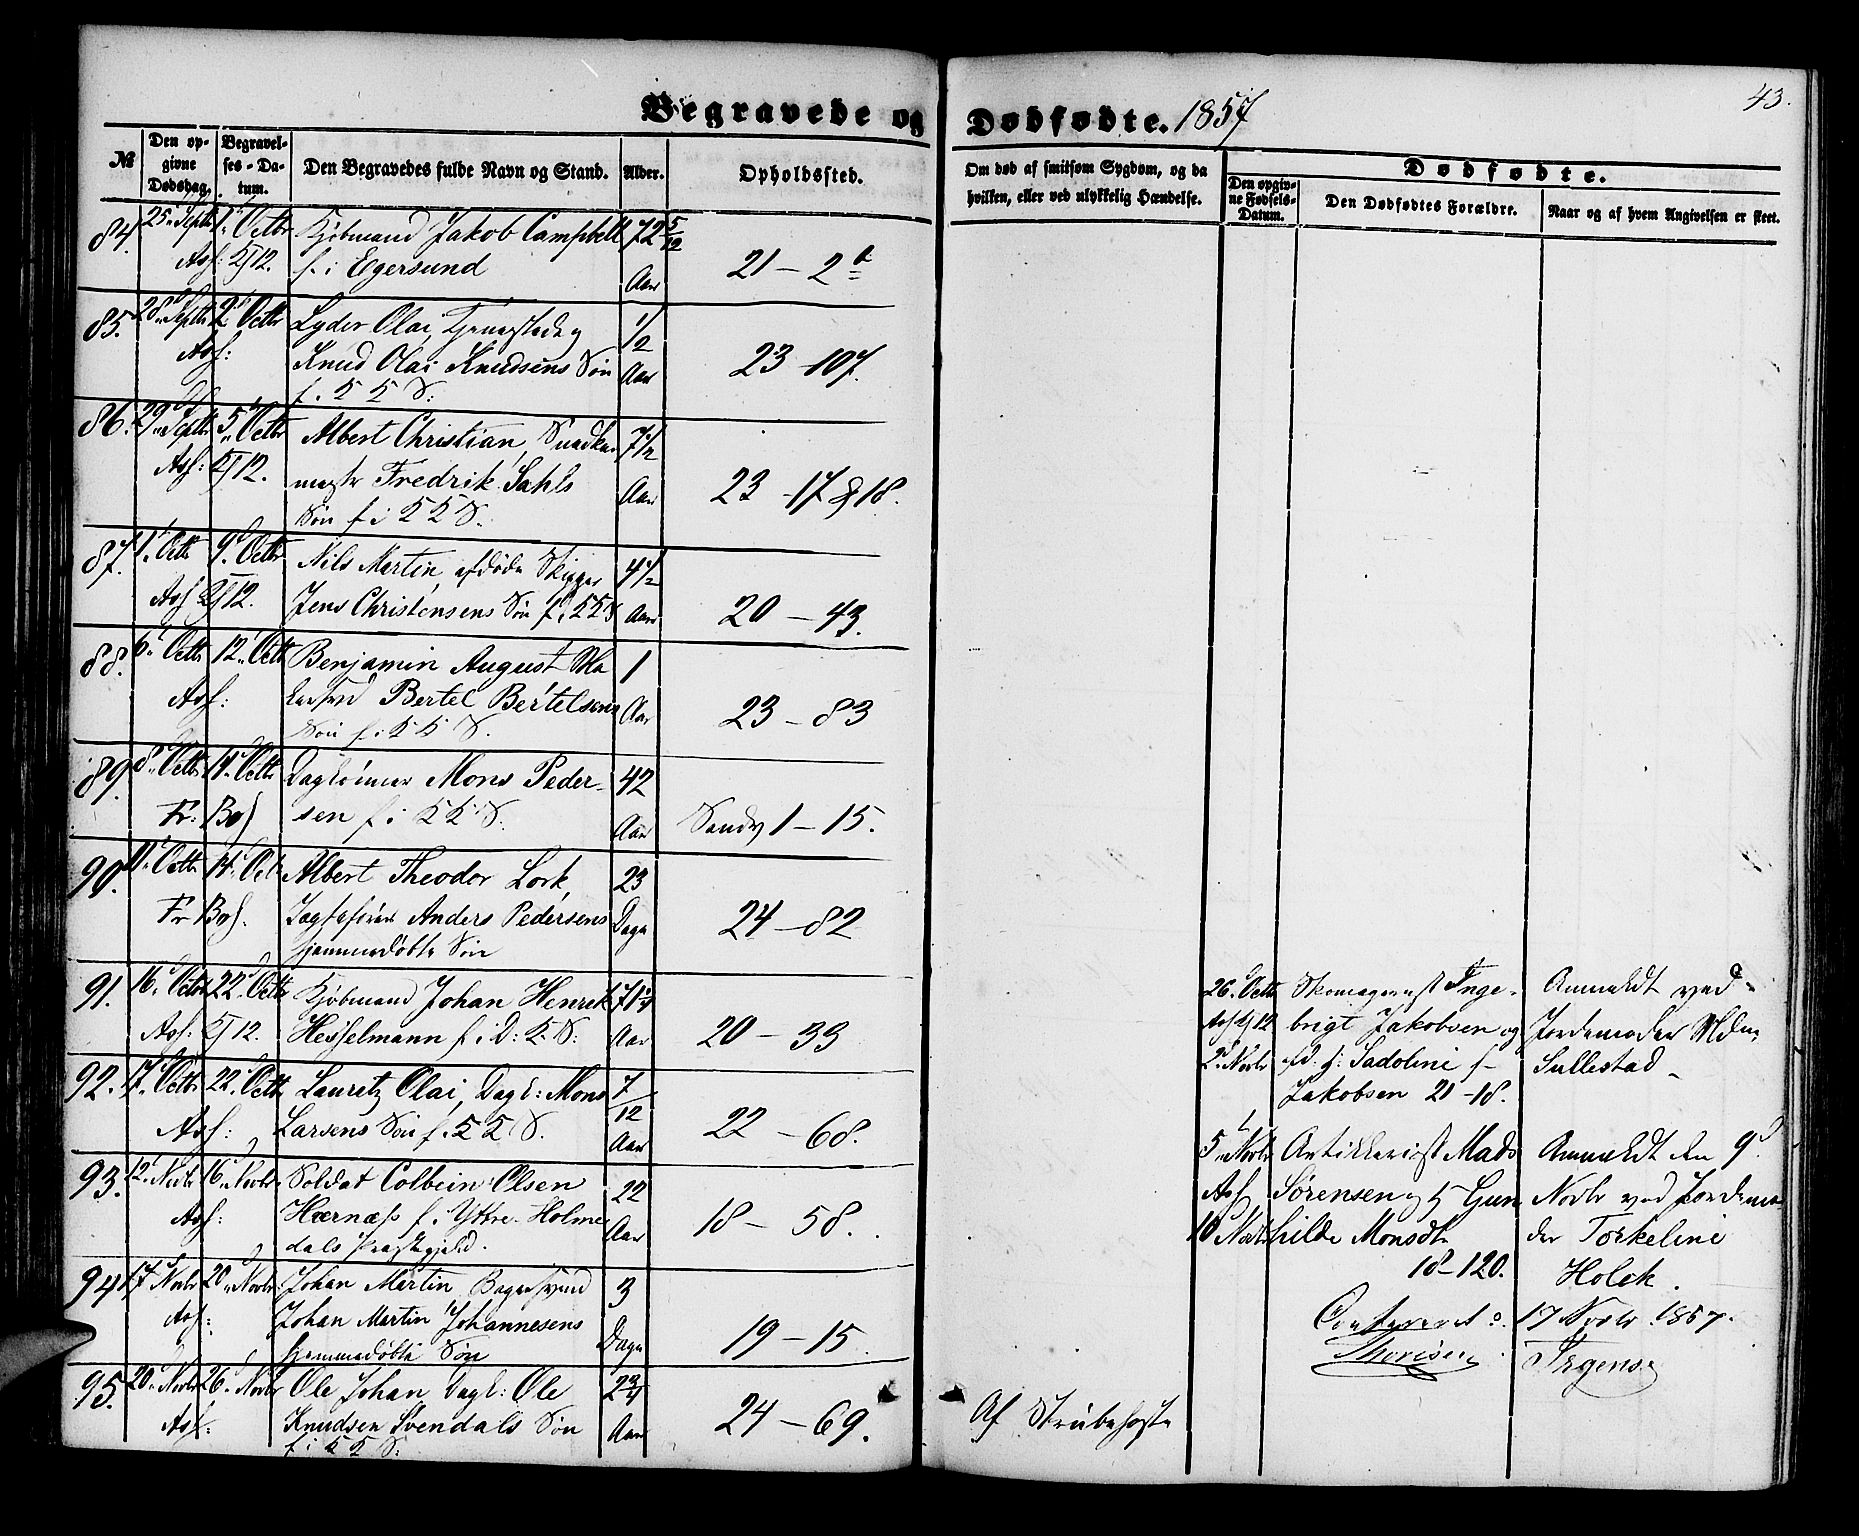 Begravede og Dødfødte. 1857
43.
№
Den opgivne Dødsdag.
Begravelses-Datum.
Den Begravedes fulde Navn og Stand.
Alder.
Opholdssted.
Om død af smitsom Sygdom, og da hvilken, eller ved ulykkelig Hændelse.
Dødfødte.
Den opgivne Fødsels-Datum.
Den Dødfødtes Forældre.
Naar og af hvem Angivelsen er skeet.
84. 25. Septbr 1. Octbr Kjøbmand Jakob Campbell 72 5/12
Asf: 2/12. f. i Egersund Aar 21 – 2
85. 28. Septbr 2. Octbr Lyder Olai, 1/2
Asf: Knud Olai Knudsens Søn Aar 23 – 107.
f. i K K S:
86. 29. Septbr 5. Octbr Albert Christian, Snedker 7 1/2
Asf: 2/12. mester Fredrik Sahls Aar 23 – 17 & 18.
Søn f i K K S.
87. 1. Octbr 9. Octbr Nils Martin, afdøde Skipper 4 1/2
Asf 2/12. Jens Christensens Søn f. i K K S Aar 20 – 43.
88. 6. Octbr 12. Octbr Benjamin August Ma 1
Asf: lersvd Bertel Bertelsens Aar 23 – 83
Søn f. i K K S.
89. 8. Octbr 14. Octbr Dagleinner Mons Peder- 42
Fr: Bos sen f. i K K S. Aar Sandv 1 – 15.
90. 11. Octbr 14. Oct. Albert Theodor Lork, 23
Fr. Bos. Jagtefører Anders Pedersens Dage 24 – 82
hjemmedøbte Søn
91. 16. Octbr 22. Octbr Kjøbmand Johan Henrik 71 1/4
Asf: 2/12. Hesselmann f. i D: K. S: Aar 20 – 33
92. 17. Octbr 22. Octbr Lauretz Olai, Dagl: Mons 7/12
Asf: Larsens Søn f. K K S. Aar 22 – 68.
93. 12. Novbr 16. Novbr. Soldat Colbein Olsen 22
Asf: Hærnæs f. Yttre Holme Aar 18 – 58.
dals Præstegjeld.
94 17 Novbr 20. Novbr Johan Martin, Bagersvend 3
Asf: Johan Martin Johannesens Dage 19 – 15
hjemmedøbte Søn
95. 20. Novbr 26. Novbr Ole Johan Dagl: Ole 2 3/4
Asf: Knudsen Svendals Søn Aar 24 – 69.
f i K K S:
Af Strubehoste
26. Octbr Skomagersvst Inge- Anmeldt ved
Asf 2/12 brigt Jakobsen og Jordemoder Mdm
2. Novbr Sadolini f- Sullestad
Jakobsen 21 – 18.
5. Novbr Antikkerist Mads Anmeldt den 9d
Asf Sørensen og H Gun Novbr ved Jordemo-
10 Novbr hilde Monsdtr der Torkelini
18 – 120. Holck.
Confereret d. 17 Novbr. 1857.
Thorisen Irgens